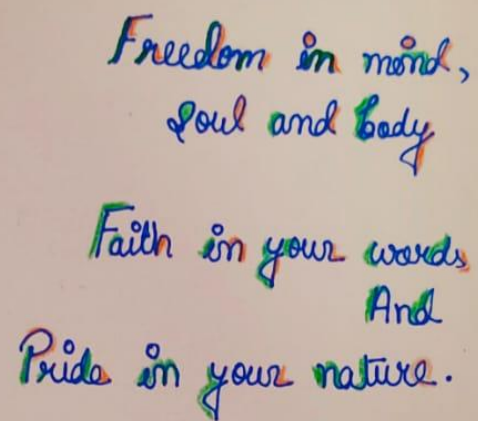 Freedom in mind,
Soul and body
Faith in your words
And
Pride in your nature.